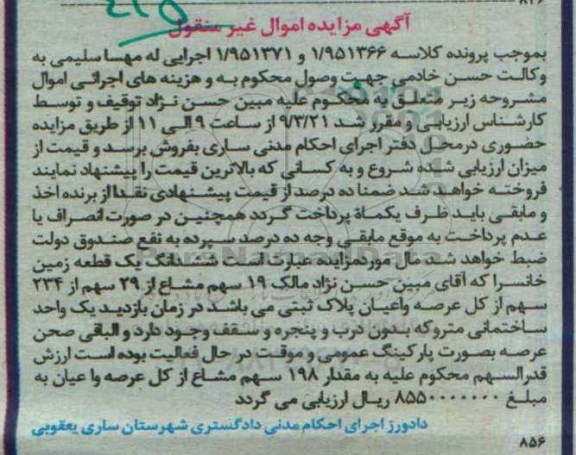 ۸۲۶
۴۲۵
آگهی مزایده اموال غیر منقول
بموجب پرونده کلاسه ۱/۹۵۱۳۶۶ و ۱/۹۵۱۳۷۱ اجرایی له مهسا سلیمی به
وکالت حسن خادمی جهت وصول محکوم به و هزینه های اجرائی اموال
مشروحه زیر متعلق به محکوم علیه مبین حسن نژاد توقیف و توسط
کارشناس ارزیابی و مقرر شد ۹/۳/۲۱ از ساعت ۹ الی ۱۱ از طریق مزایده
حضوری درمحل دفتر اجرای احکام مدنی ساری بفروش برسد و قیمت از
میزان ارزیابی شده شروع و به کسانی که بالاترین قیمت را پیشنهاد نمایند
فروخته خواهد شد ضمنا ده درصد از قیمت پیشنهادی نقدا از برنده اخذ
و مابقی باید ظرف یکماه پرداخت گردد همچنین در صورت انصراف یا
عدم پرداخت به موقع مابقی وجه ده درصد سپرده به نفع صندوق دولت
ضبط خواهد شد مال موردمزایده عبارت است ششدانگ یک قطعه زمین
خانسرا که آقای مبین حسن نژاد مالک ۱۹ سهم مشاع از ۲۹ سهم از ۲۳۴
سهم از کل عرصه واعیان پلاک ثبتی می باشد در زمان بازدید یک واحد
ساختمانی متروکه بدون درب و پنجره و سقف وجود دارد و الباقی صحن
عرصه بصورت پارکینگ عمومی و موقت در حال فعالیت بوده است ارزش
قدرالسهم محکوم علیه به مقدار ۱۹۸ سهم مشاع از کل عرصه وا عیان به
مبلغ ۸۵۵۰۰۰۰۰۰۰ ریال ارزیابی می گردد
دادورز اجرای احکام مدنی دادگستری شهرستان ساری یعقوبی
۸۵۶